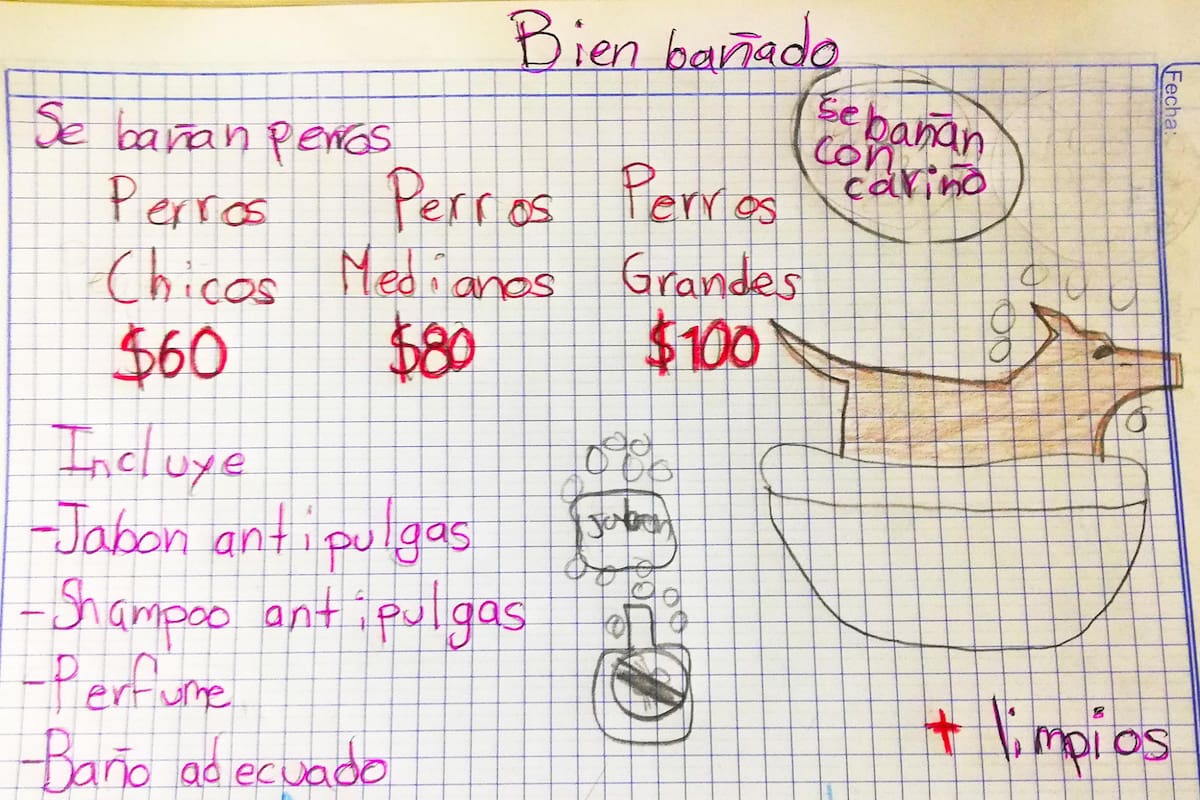 Bien bañado
Fecha:
Se bañan perros
Se bañan
con
cariño
Perros Perros Perros
Chicos Medianos Grandes
$60 $80 $100
Incluye
-Jabon antipulgas
Jabon
-Shampoo antipulgas
-Perfume
-Baño adecuado
+ limpios